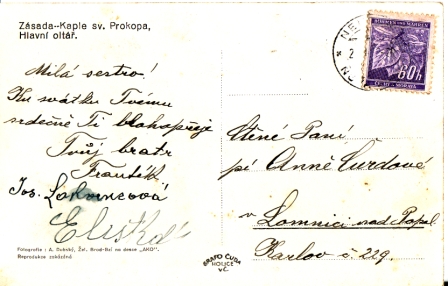 Zásada--Kaple sv. Prokopa,
Hlavní oltář.
Milá sestro!
Ku svátku Tvému
srdečně Ti blahopřeje
Tvůj bratr
Frantík
Jos.
Ctěné Paní,
pí Anně Čurdové
v Lomnici nad Popel.
Karlov č. 229.
BÖHMEN UND MÄHREN
60h
ČECHY A MORAVA
Fotografie : A. Dubský, Žel. Brod-Bzí na desce „AKO“.
Reprodukce zakázána
GRAFO ČUDA
HOLICE
v Č.